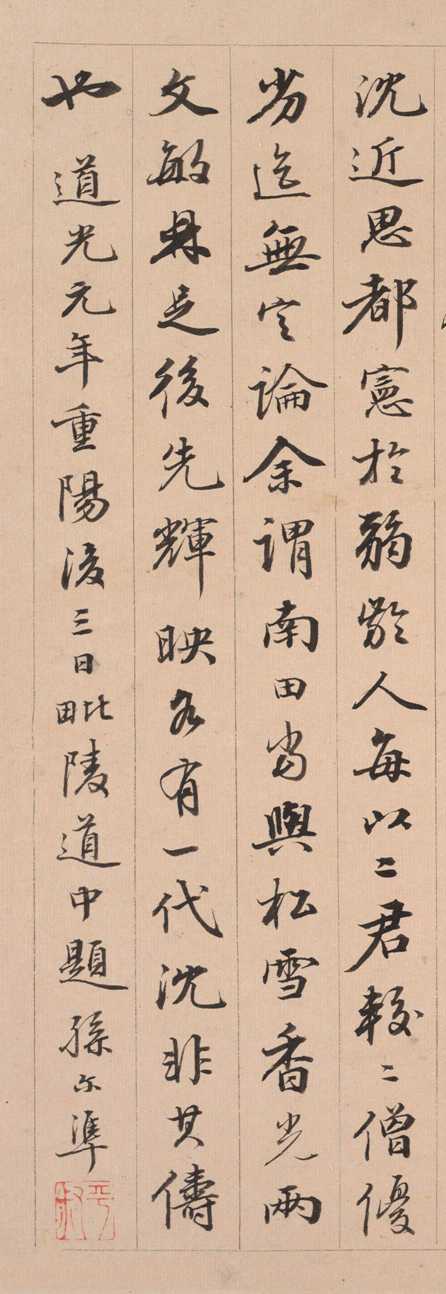 沈近思都憲於弱齡人每以二君較二僧優
劣迄無定論余謂南田當與松雪香光兩
文敏鼎足後先輝映各有一代沈非其儔
也 道光元年重陽後三日毗陵道中題孫尔準
平叔